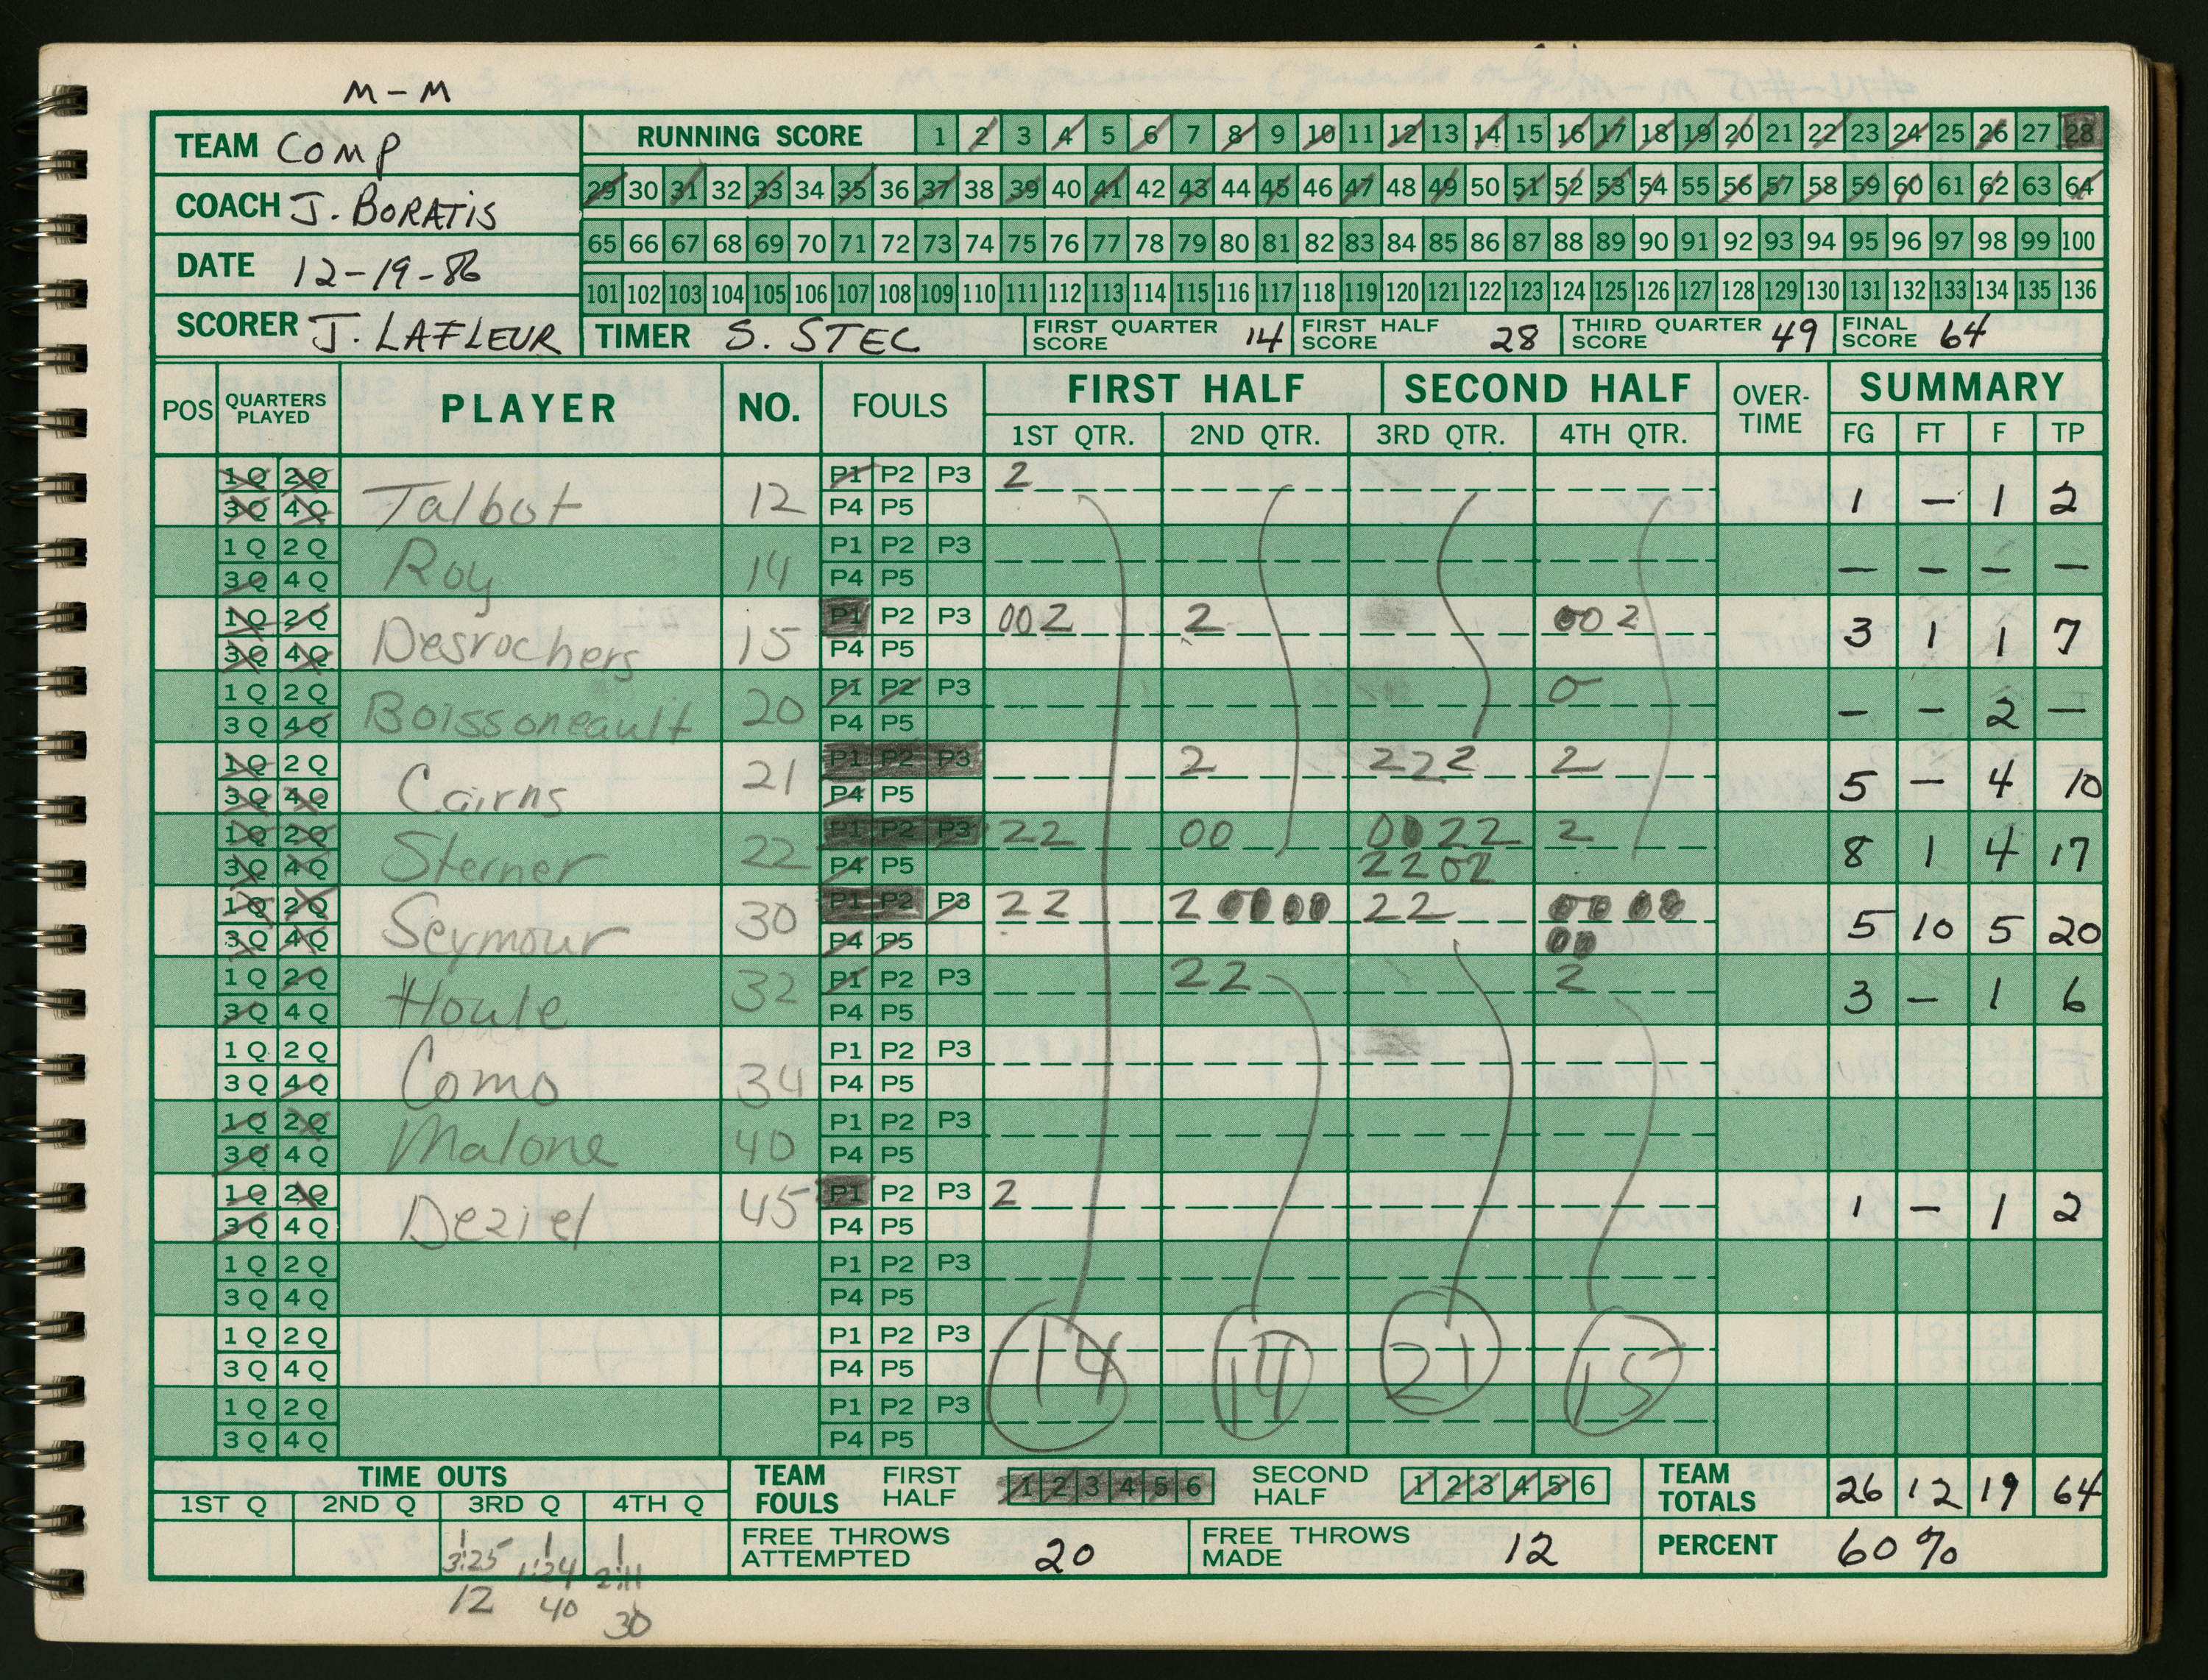 M-M
TEAM COMP
COACH J. BORATIS
DATE 12-19-86
SCORER J. LAFLEUR
RUNNING SCORE 1 2 3 4 5 6 7 8 9 10 11 12 13 14 15 16 17 18 19 20 21 22 23 24 25 26 27 28
29 30 31 32 33 34 35 36 37 38 39 40 41 42 43 44 45 46 47 48 49 50 51 52 53 54 55 56 57 58 59 60 61 62 63 64
65 66 67 68 69 70 71 72 73 74 75 76 77 78 79 80 81 82 83 84 85 86 87 88 89 90 91 92 93 94 95 96 97 98 99 100
101 102 103 104 105 106 107 108 109 110 111 112 113 114 115 116 117 118 119 120 121 122 123 124 125 126 127 128 129 130 131 132 133 134 135 136
TIMER S. STEC FIRST QUARTER SCORE 14 FIRST HALF SCORE 28 THIRD QUARTER SCORE 49 FINAL SCORE 64
POS QUARTERS PLAYED PLAYER NO. FOULS FIRST HALF SECOND HALF OVER-TIME SUMMARY
1ST QTR. 2ND QTR. 3RD QTR. 4TH QTR. FG FT F TP
1 Q 2 Q P1 P2 P3 2
3 Q 4 Q Talbot 12 P4 P5 1 - 1 2
1 Q 2 Q P1 P2 P3
3 Q 4 Q Roy 14 P4 P5 - - - -
1 Q 2 Q P1 P2 P3 002 2 00 2
3 Q 4 Q Desrochers 15 P4 P5 3 1 1 7
1 Q 2 Q P1 P2 P3 0
3 Q 4 Q Boissoneault 20 P4 P5 - - 2 -
1 Q 2 Q P1 P2 P3 2 222 2
3 Q 4 Q Cairns 21 P4 P5 5 - 4 10
1 Q 2 Q P1 P2 P3 22 00 0022 2
3 Q 4 Q Sterner 22 P4 P5 2202 8 1 4 17
1 Q 2 Q P1 P2 P3 22 2 0000 22 00 00
3 Q 4 Q Seymour 30 P4 P5 00 5 10 5 20
1 Q 2 Q P1 P2 P3 22 2
3 Q 4 Q Houle 32 P4 P5 3 - 1 6
1 Q 2 Q P1 P2 P3
3 Q 4 Q Como 34 P4 P5
1 Q 2 Q P1 P2 P3
3 Q 4 Q Malone 40 P4 P5
1 Q 2 Q P1 P2 P3 2
3 Q 4 Q Deziel 45 P4 P5 1 - 1 2
1 Q 2 Q P1 P2 P3
3 Q 4 Q P4 P5
1 Q 2 Q P1 P2 P3
3 Q 4 Q P4 P5 14 14 21 15
1 Q 2 Q P1 P2 P3
3 Q 4 Q P4 P5
TIME OUTS
1ST Q 2ND Q 3RD Q 4TH Q
1 1 1
3:25 1:24 2:11
12 40 30
TEAM FOULS FIRST HALF 1 2 3 4 5 6 SECOND HALF 1 2 3 4 5 6
TEAM TOTALS 26 12 19 64
FREE THROWS ATTEMPTED 20 FREE THROWS MADE 12 PERCENT 60%